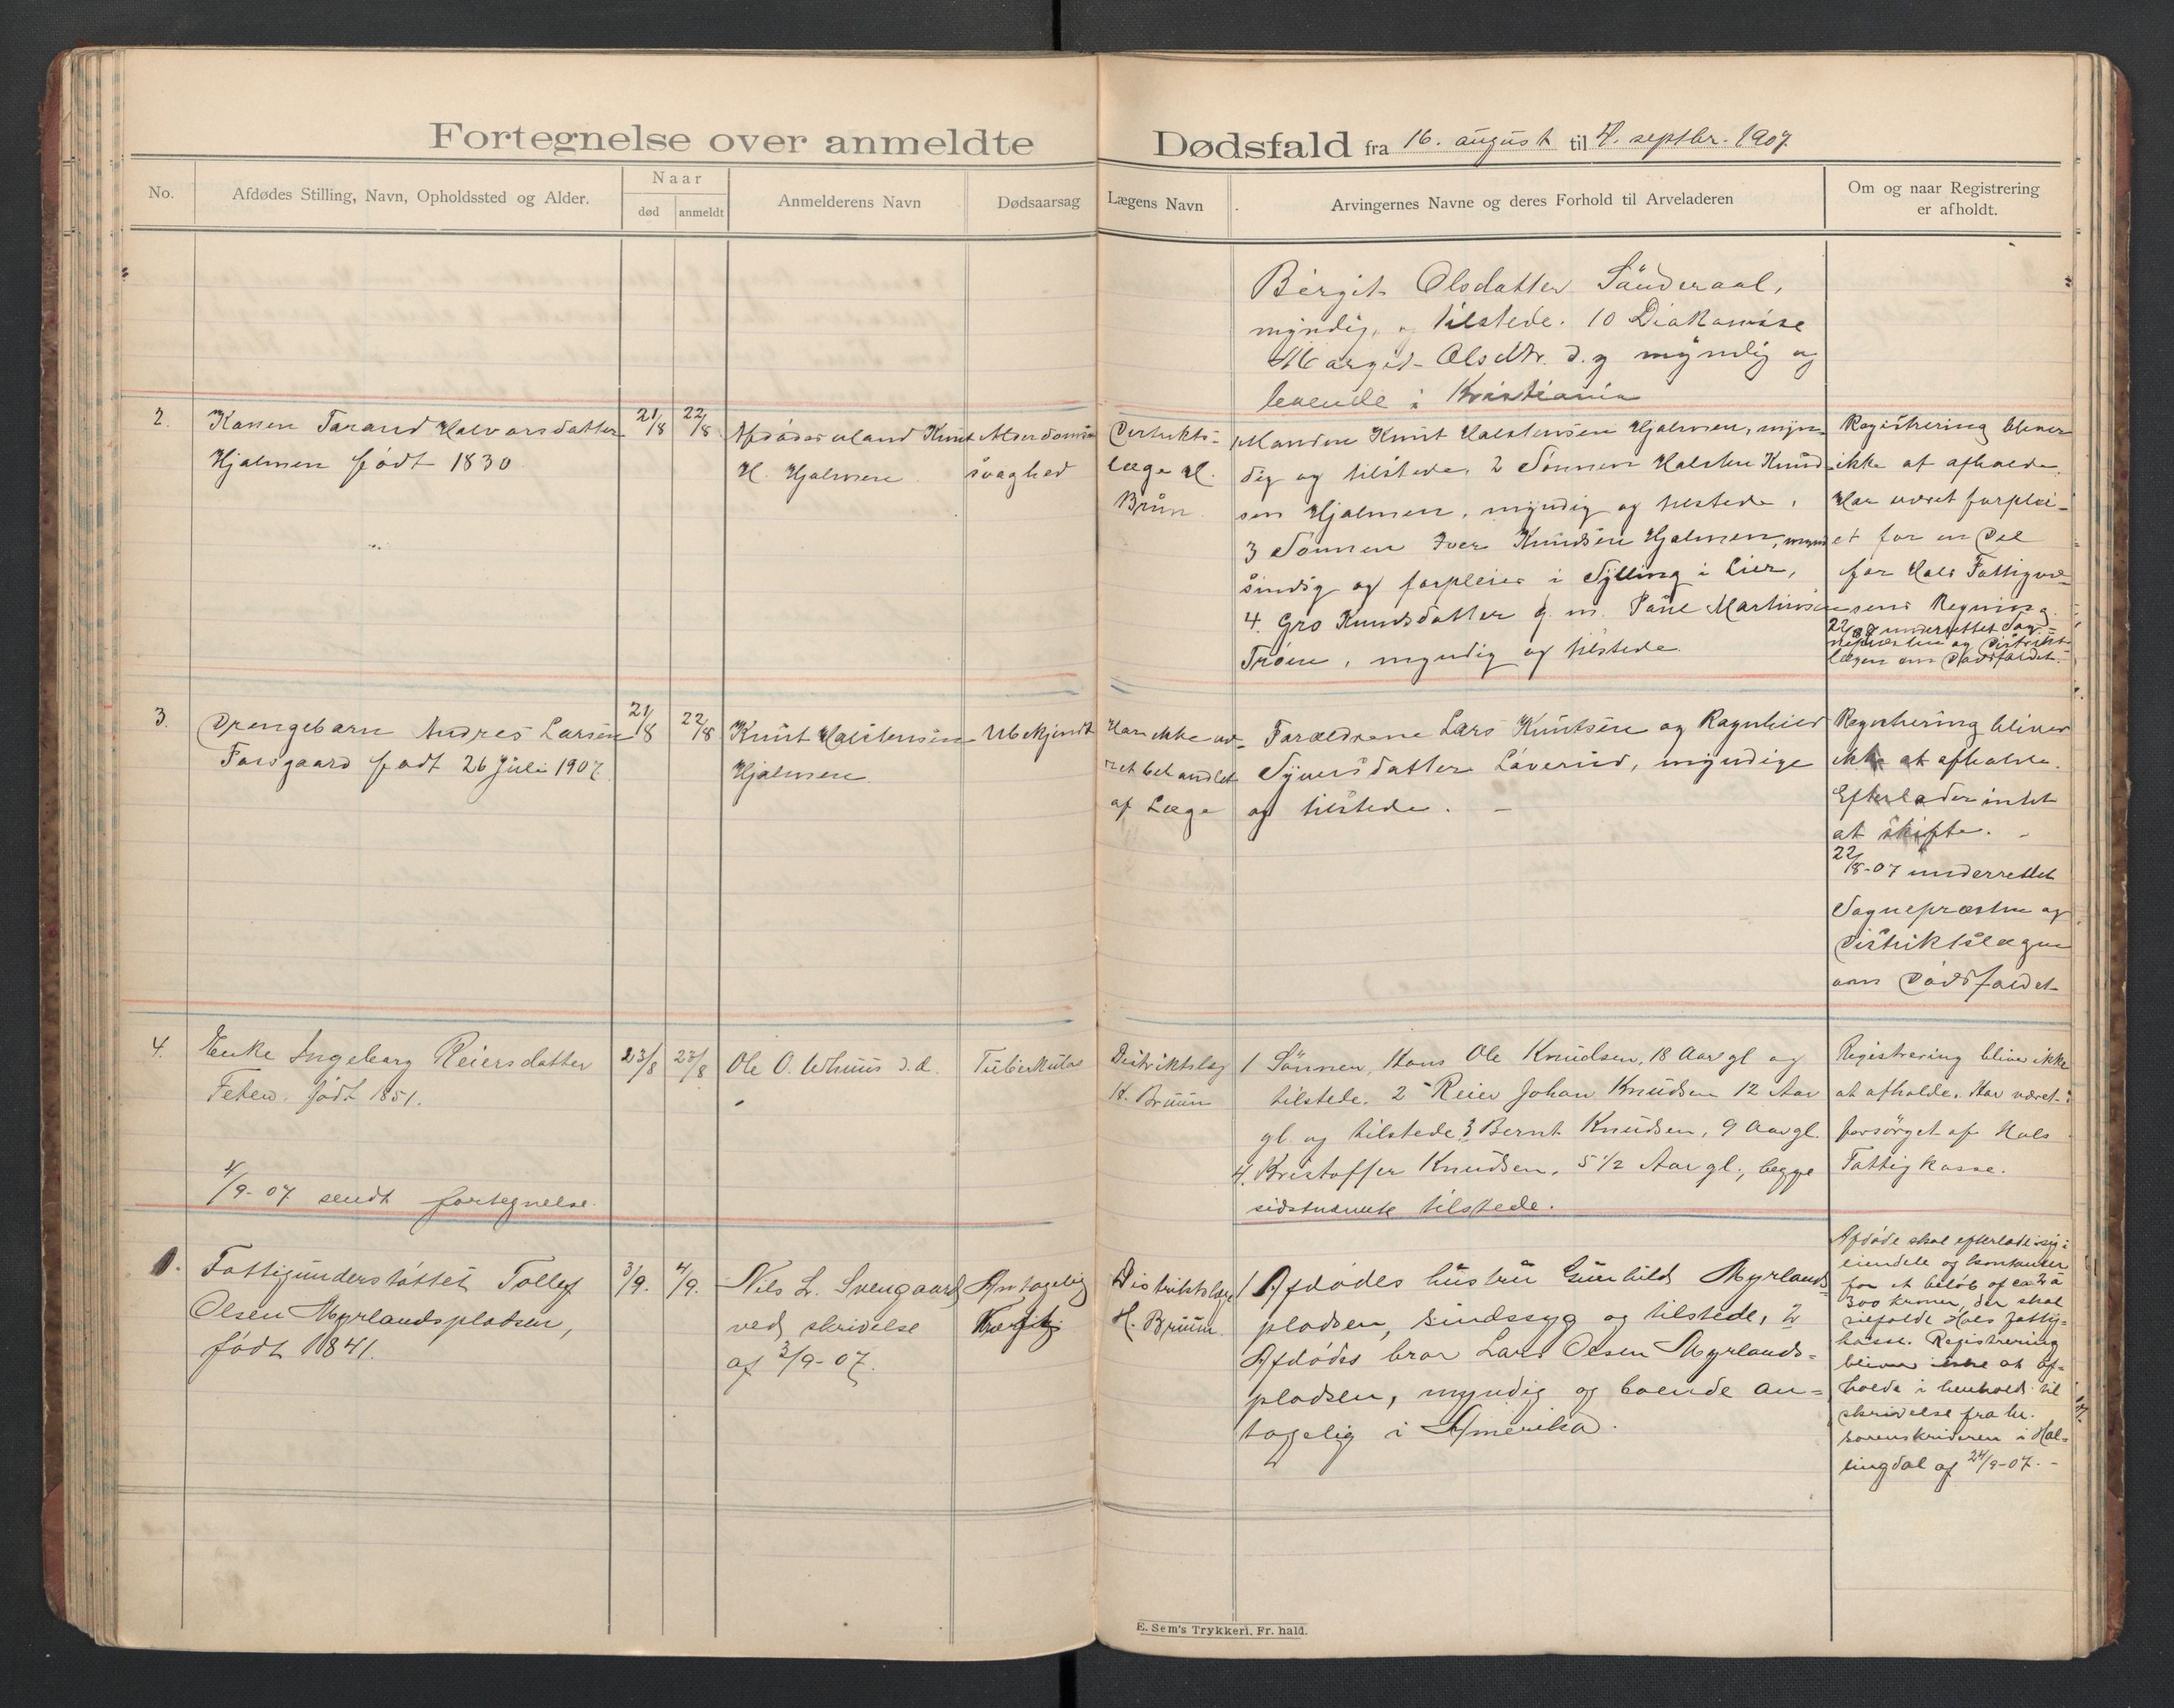 Fortegnelse over anmeldte Dødsfald fra 16. august til 4. septbr. 1907.
No.
Afdødes Stilling, Navn, Opholdssted og Alder.
Naar
død
anmeldt
Anmelderens Navn
Dødsaarsag
Lægens Navn
Arvingernes Navne og deres Forhold til Arveladeren
Om og naar Registrering
er afholdt.
Birgit Olsdatter Sønderaal,
myndig, og tilstede. 10 Diakonisse
Margit Olsdtr. d. g myndig og
boende i Kristiania
2.
Konen Tarand Halvorsdatter
Hjalmen født 1830
21/8
22/8
Afdødes Mand Knut
H. Hjalmen
Alderdoms
svaghed
Distrikts-
læge H.
Bruun
1 Manden Knut Halstensen Hjalmen, myn-
dig og tilstede, 2 Sønnen Halsten Knud
sen Hjalmen, myndig og tilstede,
3 Sønnen Iver Knudsen Hjalmen,
sindsig og forpleies i Sylling i Lier,
4. Gro Knudsdatter g. m. Paul Martinsen
Trøen, myndig og tilstede
Registrering bliver
ikke at afholde.
Har været forplei-
et for en Del
for Hols Fattigvæ-
sens Regning.
22/8 07 underrettet Sog-
nepræsten og Distrikt-
lægen om Dødsfaldet.
3.
Drengebarn Andres Larsen
Forsgaard født 26 Juli 1907.
21/8
22/8
Knut Halstensen
Hjalmen
Ubekjendt
Har ikke væ-
ret behandlet
af Læge
Forældrene Lars Knutsen og Ragnhild
Syversdatter Løverud, myndige
og tilstede. -
Registrering bliver
ikke at afholde.
Efterlader intet
at skifte. -
22/8-07 underrettet
Sognepræsten og
Distriktslægen
om Dødsfaldet
4.
Enke Ingeborg Reiersdatter
Feten. født 1851.
4/9-07 sendt fortegnelse.
23/8
23/8
Ole O. Whuus d. d.
Tuberkulos
Distriktslæg
H. Bruun
1 Sønnen, Hans Ole Knudsen, 18 Aar gl og
tilstede. 2 Reier Johan Knudsen 12 Aar
gl. og tilstede 3 Bernt Knudsen, 9 Aar gl.
4. Kristoffer Knudsen, 5 1/2 Aar gl., begge
sidstnævnte tilstede.
Registrering bliver ikke
at afholde. Har været
forsørget af Hols
Fattigkasse.
1.
Fattigunderstøttet Tollef
Olsen Myrlandspladsen,
født 1841.
3/9.
4/9.
Nils L. Svengaard
ved skrivelse
af 3/9-07.
Antagelig
Distriktslæge
H. Bruun.
1 Afdødes hustru Gunhild Myrlands-
pladsen, sindssyg og tilstede, 2
Afdødes bror Lars Olsen Myrlands-
pladsen, myndig og boende an-
tagelig i Amerika.
Afdøde skal efterlade sig i
eiendele og kontanter
for et beløb af ca 2 à
300 kroner, der skal
tilfalde Hols fattig-
kasse. Registrering
bliver ikke at af-
holde i henhold til
skrivelse fra hr.
sorenskriveren i Hal-
lingdal af 24/9-07. -
E. Sem's Trykkeri. Fr. hald.